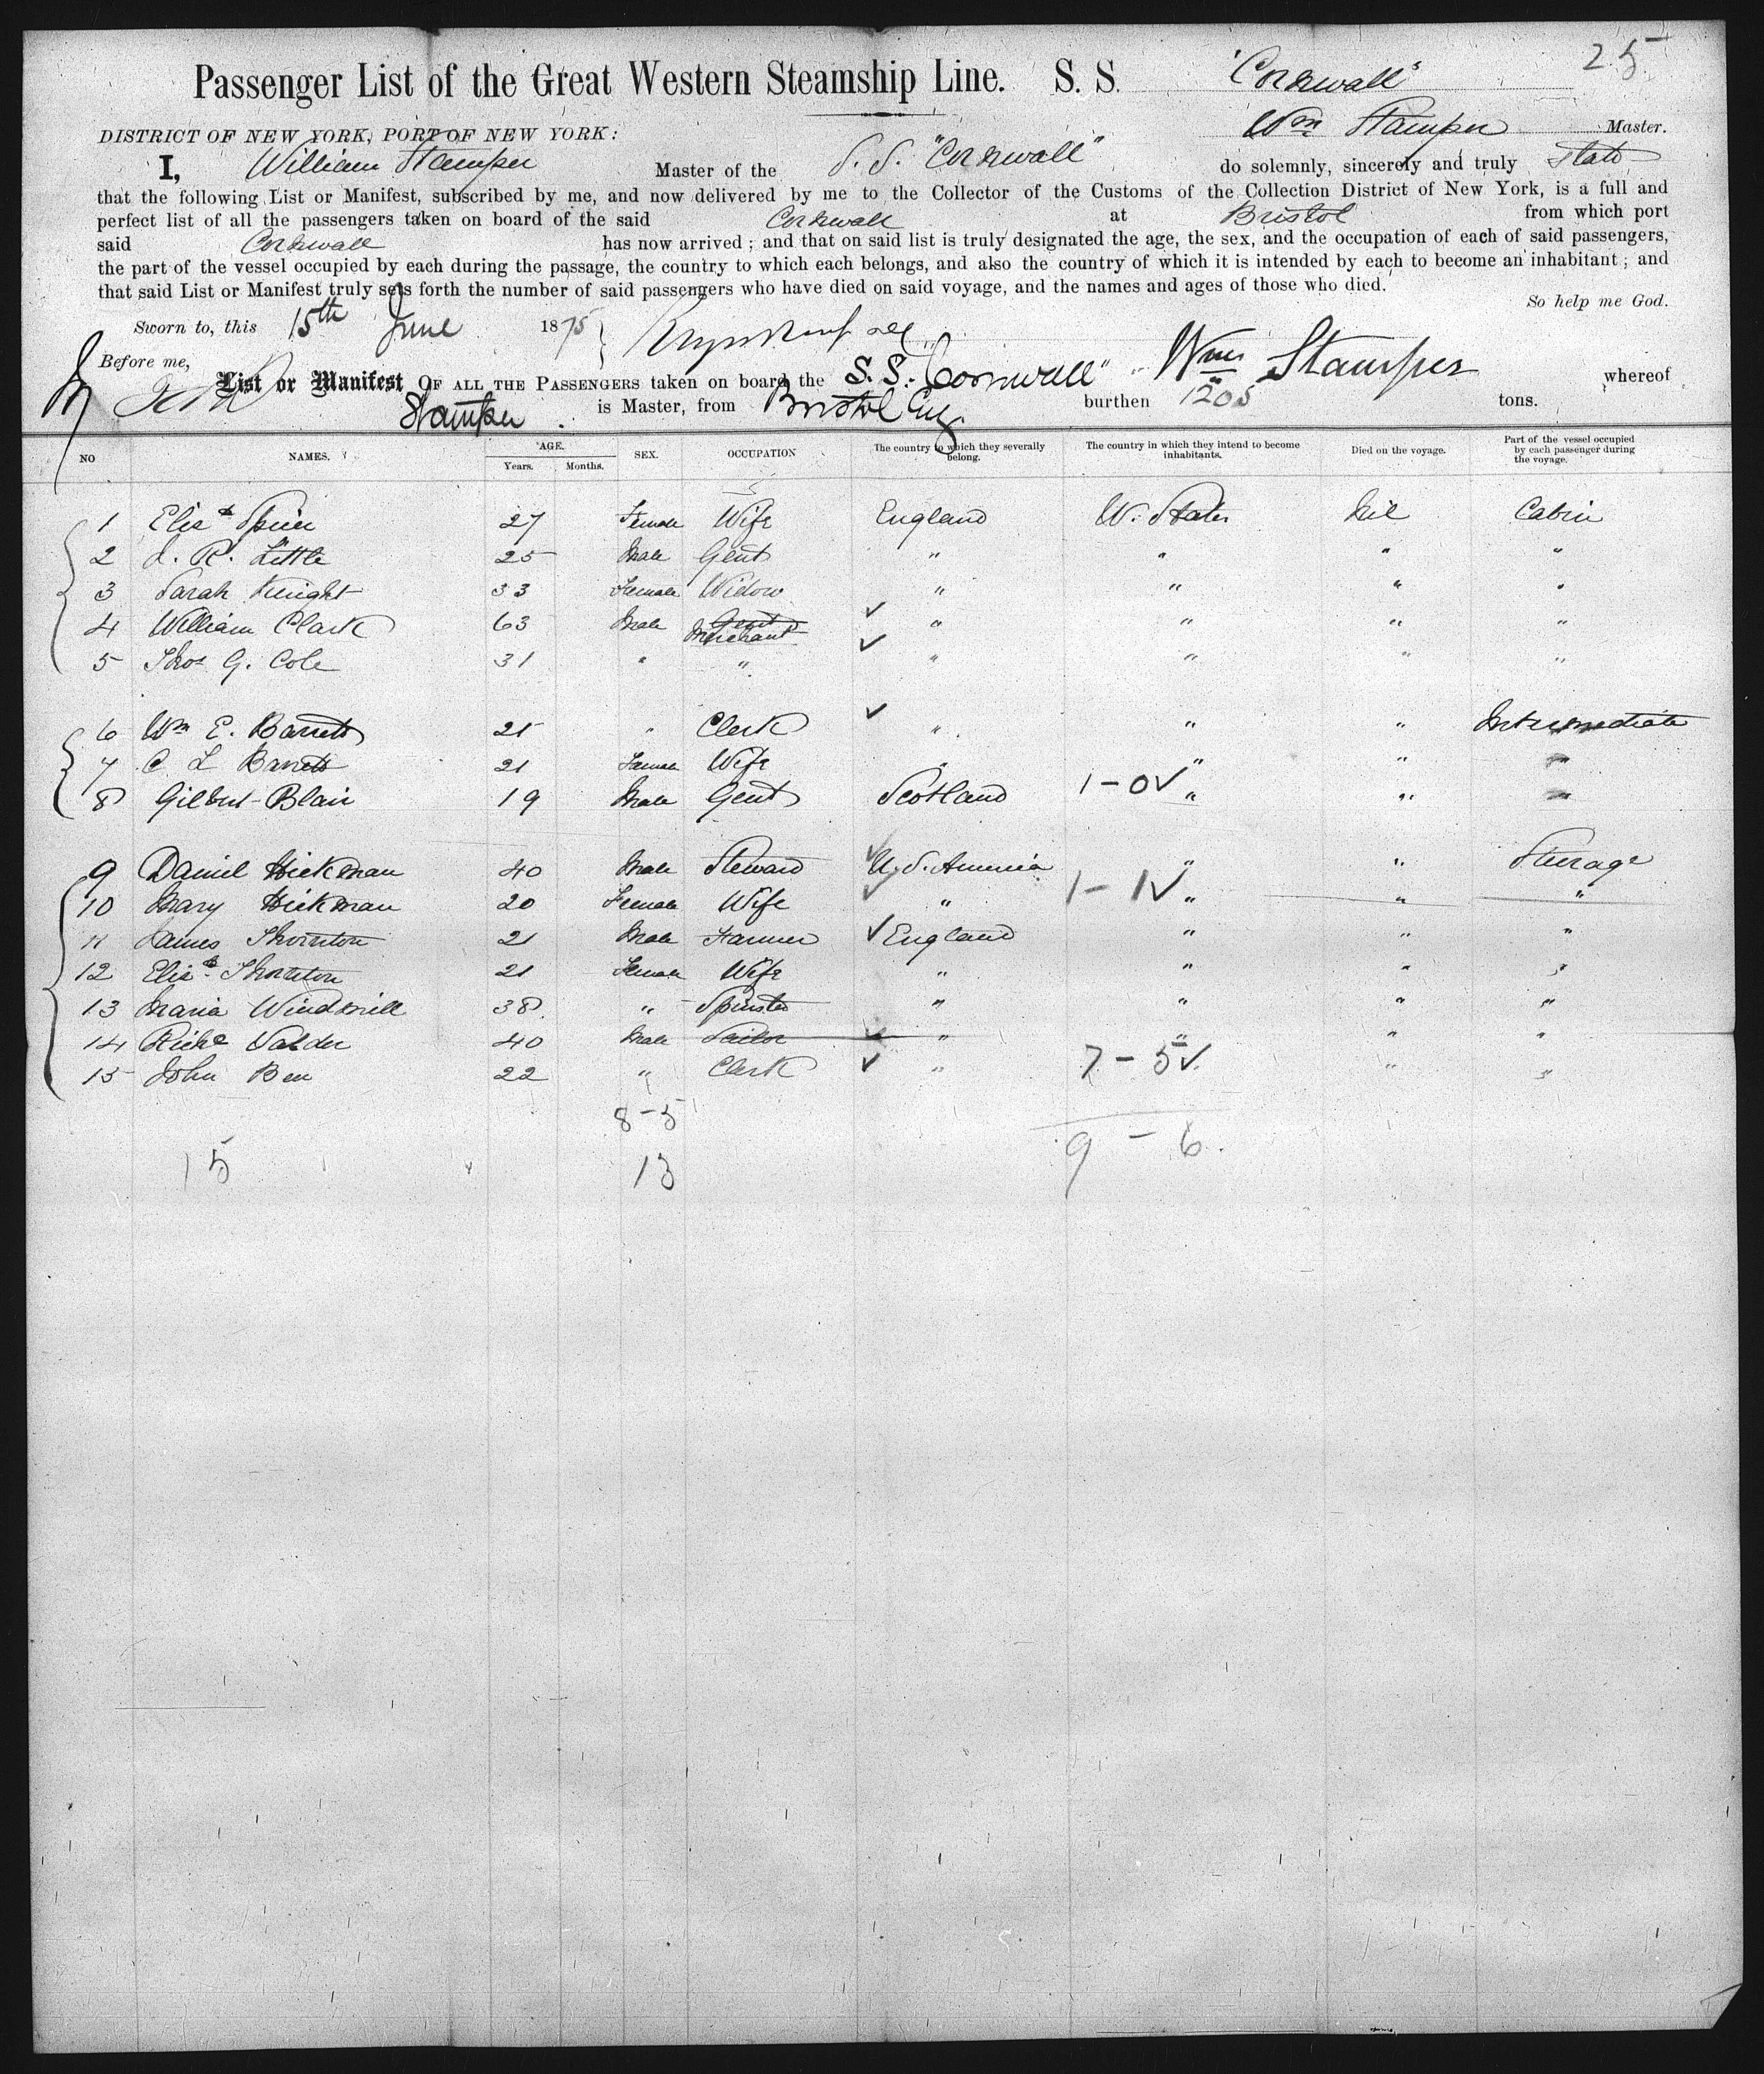 25
Passenger List of the Great Western Steamship Line. S. S. "Cornwall"
DISTRICT OF NEW YORK, PORT OF NEW YORK: Wm Stamper Master.
I, William Stamper Master of the S. S. "Cornwall" do solemnly, sincerely and truly state
that the following List or Manifest, subscribed by me, and now delivered by me to the Collector of the Customs of the Collection District of New York, is a full and
perfect list of all the passengers taken on board of the said Cornwall at Bristol from which port
said Cornwall has now arrived; and that on said list is truly designated the age, the sex, and the occupation of each of said passengers,
the part of the vessel occupied by each during the passage, the country to which each belongs, and also the country of which it is intended by each to become an inhabitant; and
that said List or Manifest truly sets forth the number of said passengers who have died on said voyage, and the names and ages of those who died.
So help me God.
Sworn to, this 15th June 1875
Before me,
List or Manifest OF ALL THE PASSENGERS taken on board the S. S. "Cornwall" Wm Stamper whereof
Stamper is Master, from Bristol Eng burthen 1205 tons.
NO NAMES. AGE. Years. Months. SEX. OCCUPATION The country to which they severally belong. The country in which they intend to become inhabitants. Died on the voyage. Part of the vessel occupied by each passenger during the voyage.
1 Elizth Spier 27 Female Wife England U. States Nil Cabin
2 J. R. Little 25 Male Gent " " " "
3 Sarah Knight 33 Female Widow " " " "
4 William Clark 63 Male Gent Merchant ✓ " " " "
5 Thos G. Cole 31 " " ✓ " " " "
6 Wm E. Barrett 21 " Clerk ✓ " " " Intermediate
7 C L Barrett 21 Female Wife " " " "
8 Gilbert Blair 19 Male Gent Scotland 1-0 ✓ " " "
9 Daniel Hickman 40 Male Steward ✓ U. S. America " " Steerage
10 Mary Hickman 20 Female Wife ✓ " 1-1 ✓ " " "
11 James Thornton 21 Male Farmer ✓ England " " "
12 Elizth Thornton 21 Female Wife " " " "
13 Maria Windmill 38 " Spinster " " " "
14 Richd Valder 40 Male Sailor ✓ " " " "
15 John Ben 22 " Clerk ✓ " 7-5 ✓ " "
8-5
15 13 9-6.